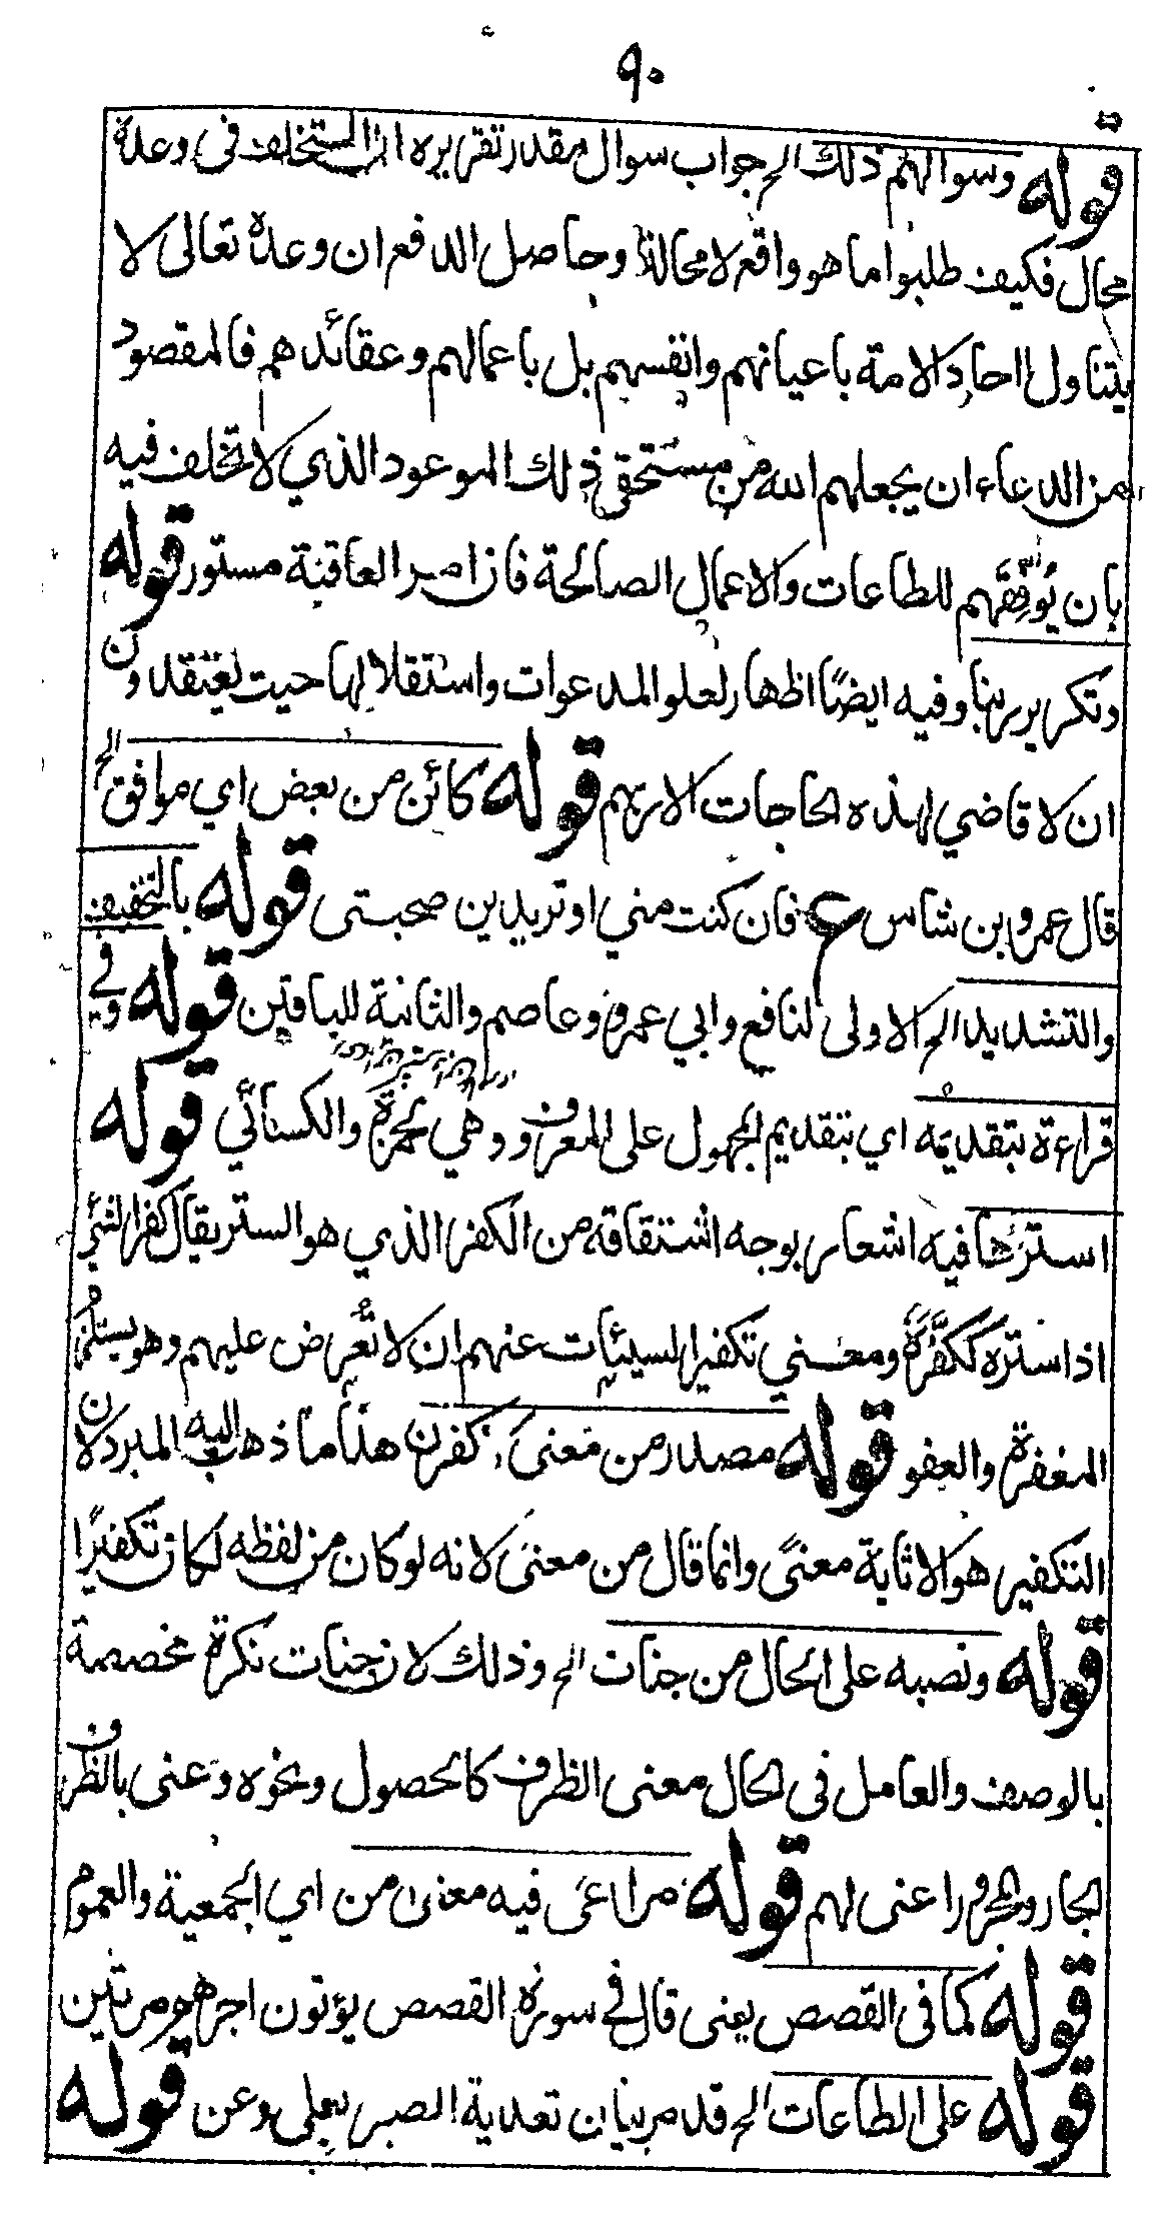 ٩٠
قوله وسوالهم ذلك الخ جواب سوال مقدر تقريره ان المستخلف في وعدة
محال فكيف طلبوا ما هو واقع لا محالة وحاصل الدفع ان وعدة تعالى لا
يتناول احاد الامة باعيانهم وانفسهم بل باعمالهم وعقائدهم فالمقصود
من الدعاء ان يجعلهم الله من مستحقي ذلك الموعود الذي لا تخلف فيه
بان يُوَفِّقَهم للطاعات والاعمال الصالحة فان امر العاقبة مستور قوله
وتكرير ربنا وفيه ايضًا اظهار لعلو المدعوات واستقلالها حيث يعتقدون
ان لا قاضي لهذه الحاجات الا ربهم قوله كائن من بعض اي موافق الخ
قال عمرو بن شاس ع فان كنت مني او تريدين صحبتي قوله بالتخفيف
والتشديد الخ الاولى لنافع وابي عمرو وعاصم والثانية للباقين قوله وفي
قراءة بتقديمه اي بتقديم المجهول على المعروف وهي لحمزة والكسائي قوله
استرها فيه اشعار بوجه اشتقاقه من الكفر الذي هو الستر يقال كفر الشئ
اذا ستره ككفَّرَهُ ومعنى تكفير السيئات عنهم ان لا تُعرض عليهم وهو يستلزم
المغفرة والعفو قوله مصدر من معنى كفرن هذا ما ذهب اليه المبرد لان
التكفير هو الاثابة معنًى وانما قال من معنى لانه لو كان من لفظه لكان تكفيرًا
قوله ونصبه على الحال من جنات الخ وذلك لان جنات نكرة مخصصة
بالوصف والعامل في الحال معنى الظرف كالحصول ونحوه وعنى بالظرف
الجار والمجرور اعنى لهم قوله مراعى فيه معنى من اي الجمعية والعموم
قوله كما في القصص يعنى قال في سورة القصص يؤتون اجرهم مرتين
قوله على الطاعات الخ قد مر بيان تعدية الصبر بعلى وعن قوله